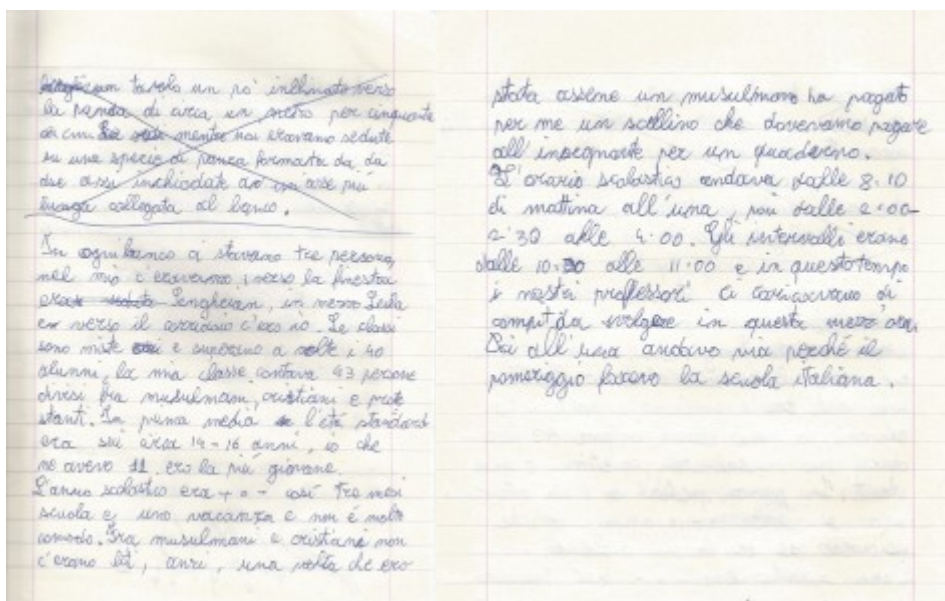 tavolo un po' inclinato verso
la panca di circa un metro per cinquanta
cm mentre noi eravamo sedute
su una specie di panca formata da da
due assi inchiodate ad un'asse più
lunga collegata al banco.
In ogni banco ci stavano tre persone,
nel mio c'eravamo, verso la finestra
Senghesan, in mezzo Leila
e verso il corridoio c'ero io. Le classi
sono miste e superano a volte i 40
alunni, la mia classe contava 43 persone
divisi fra musulmani, cristiani e prote
stanti. In prima media l'età standard
era sui circa 14-16 anni, io che
ne avevo 11 ero la più giovane.
L'anno scolastico era + o - così tre mesi
scuola e uno vacanza e non é molto
comodo. Fra musulmani e cristiani non
c'erano liti, anzi, una volta che ero
stata assente un musulmano ha pagato
per me un scellino che dovevamo pagare
all'insegnante per un quaderno.
L'orario scolastico andava dalle 8.10
di mattina all'una, poi dalle 2.00-
2.30 alle 4.00. Gli intervalli erano
dalle 10.30 alle 11.00 e in questo tempo
i nostri professori ci caricavano di
compiti da svolgere in questa mezz'ora.
Poi all'una andavo via perché il
pomeriggio facevo la scuola italiana.